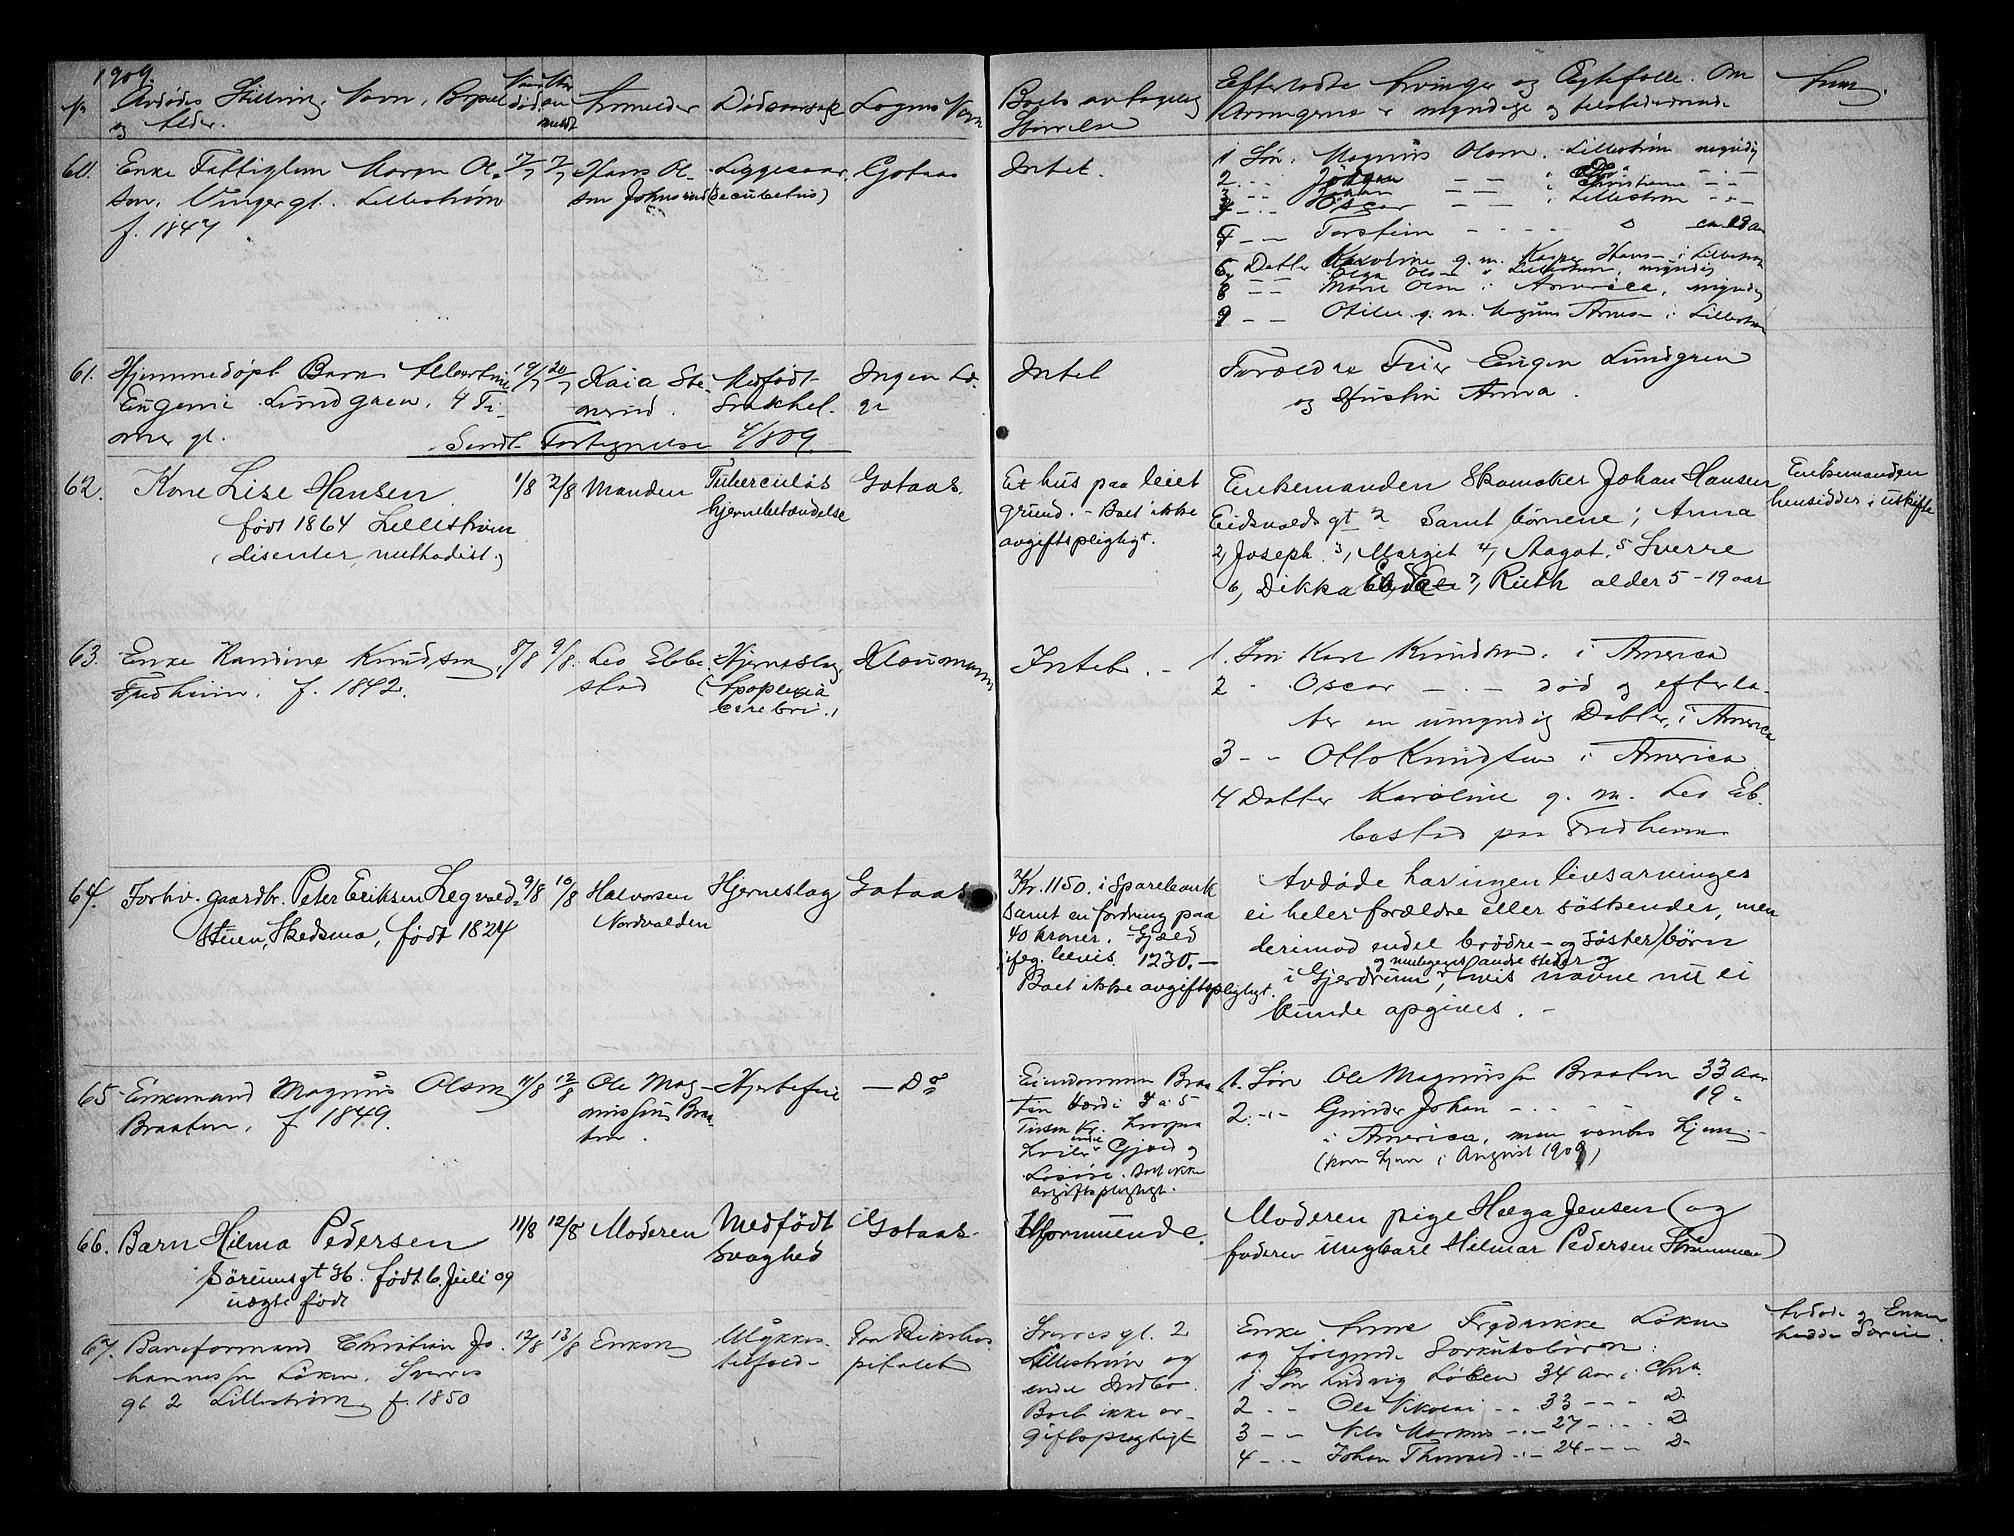 1909.
No Avdødes Stilling, Navn, Bopæl og Alder.
Naar død
Naar anmeldt
Anmelder
Dødsaarsak
Lægens Navn
Boets antagelig Størrelse
Efterladte Arvinger og Ægtefælle. Om Arvingerne er myndige og tilstedeværende
Anm.
60. Enke Fattiglem Maren Ol-
sen, Vingergt. Lillestrøm
f. 1847
17/7
Hans Ol-
sen Johnsrud
Liggesaar
(decubetus)
Gotaas
Intet.
1 Søn. Magnus Olsen. Lillestrøm myndig
2 Jørgen
3 Johan Christiania
4 Oscar Lillestrøm
5 Torstein
6 Datter Karoline g. m. Kasper Hans i Lillestrøm
7 Olga Olsen Lillestrøm, myndig
8 Marie Olsen i Amerika, myndig
9 Otilie g. m. Magnus i Lillestrøm
61. Hjemmedøpt Barn Albertine
Eugenie Lundgren. 4 Ti-
mer gl.
19/7 20/7
Kaia Ste-
nerud.
Medfødt
Svakhet.
Ingen Læ-
ge
Intet
Forældre Eugen Lundgren
og Hustru Anna.
Sendt Fortegnelse 4/8 09.
62. Kone Lise Hansen
født 1864 Lillestrøm
(disenter, methodist.)
1/8 2/8 Manden
Tuberculøs
hjernebetændelse
Gotaas.
Et hus paa leiet
grund. - Boet ikke
avgiftspligtigt.
Enkemanden Skomaker Johan Hansen
Eidsvoldsgt 2 Samt børnene; Anna
2, Joseph. 3, Margit 4, Aagot. 5 Sverre
6, Dikka 7, Ruth alder 5 - 19 aar
Enkemanden
hensidder i uskifte
63. Enke Randine Knudsen
Fredheim. f. 1842.
8/8 9/8.
Leo Ebbe-
stad
Hjerneslag
(Apoplexia
cerebri.)
Kloumann
Intet. -
1. Søn Karl Knudsen. i America
2 - Oscar - . - død og efterla-
ter en umyndig Datter, i America
3 - - Otto Knudsen i America
4 Datter Karoline g. m. Leo Eb-
bestad paa Fredheim
64. Forhv. gaardbr. Peter Eriksen Legred-
stuen, Skedsmo, født 1824
9/8 10/8
Halvorsen
Nordvalden
Hjerneslag
Gotaas
Kr. 1150. i Sparebank
samt en fordring paa
40 kroner. - Gjæld
1230. -
Boet ikke avgiftspligtigt.
Avdøde har ingen livsarvinger
ei heler forældre eller søskender, men
derimod endel brødre - og søster) børn
og muligens andre steder og
i Gjerdrum, hvis navne nu ei
kunde opgives. -
65 Enkemand Magnus Olsen
Braaten. f 1849.
11/8 12/8
Ole Mag-
nussen Braa-
ten.
Hjertefeil
- Do
Eiendommen Braa-
ten Værdi 4 a 5
Tusen Kr. hvorpaa
hviler endel Gjæld og
Løsøre. Boet ikke
avgiftspligtigt.
1. Søn Ole Magnussen Braaten 33 Aar
2. - Gunder Johan - . . - 19 -
i America, men ventes hjem. -
(kom hjem i August 1909)
66. Barn Hilma Pedersen
Sørumsgt 36. født 6. Juli 09
uægte født
11/8 12/8 Moderen
Medfødt
svaghed
Gotaas.
Uformuende.
Moderen pige Helga Jensen (og
faderen ungkarl Hilmar Pedersen Strømmen)
67. Baneformand Christian Jo-
hannessen Løken, Sverres
gt 2 Lillestrøm f. 1850
12/8 13/8 Enken
Ulykkes-
tilfæld-
Paa Rikshos-
pitalet
Sverres gt. 2
Lillestrøm og
endel Indbo.
Boet ikke av-
giftspligtigt
Enke Anne Fredrikke Løken
og følgende Særkulsbørn:
1 Søn Ludvig Løken 34 Aar i Chra.
2 . . Ole Nikolai . . 33 - - - Do
3 - - Nils Markus - . - 27 - - . . Do
4 - . - Johan Thorvald . . - 24 - - - Do
Avdøde og Enken
hadde Særeie.